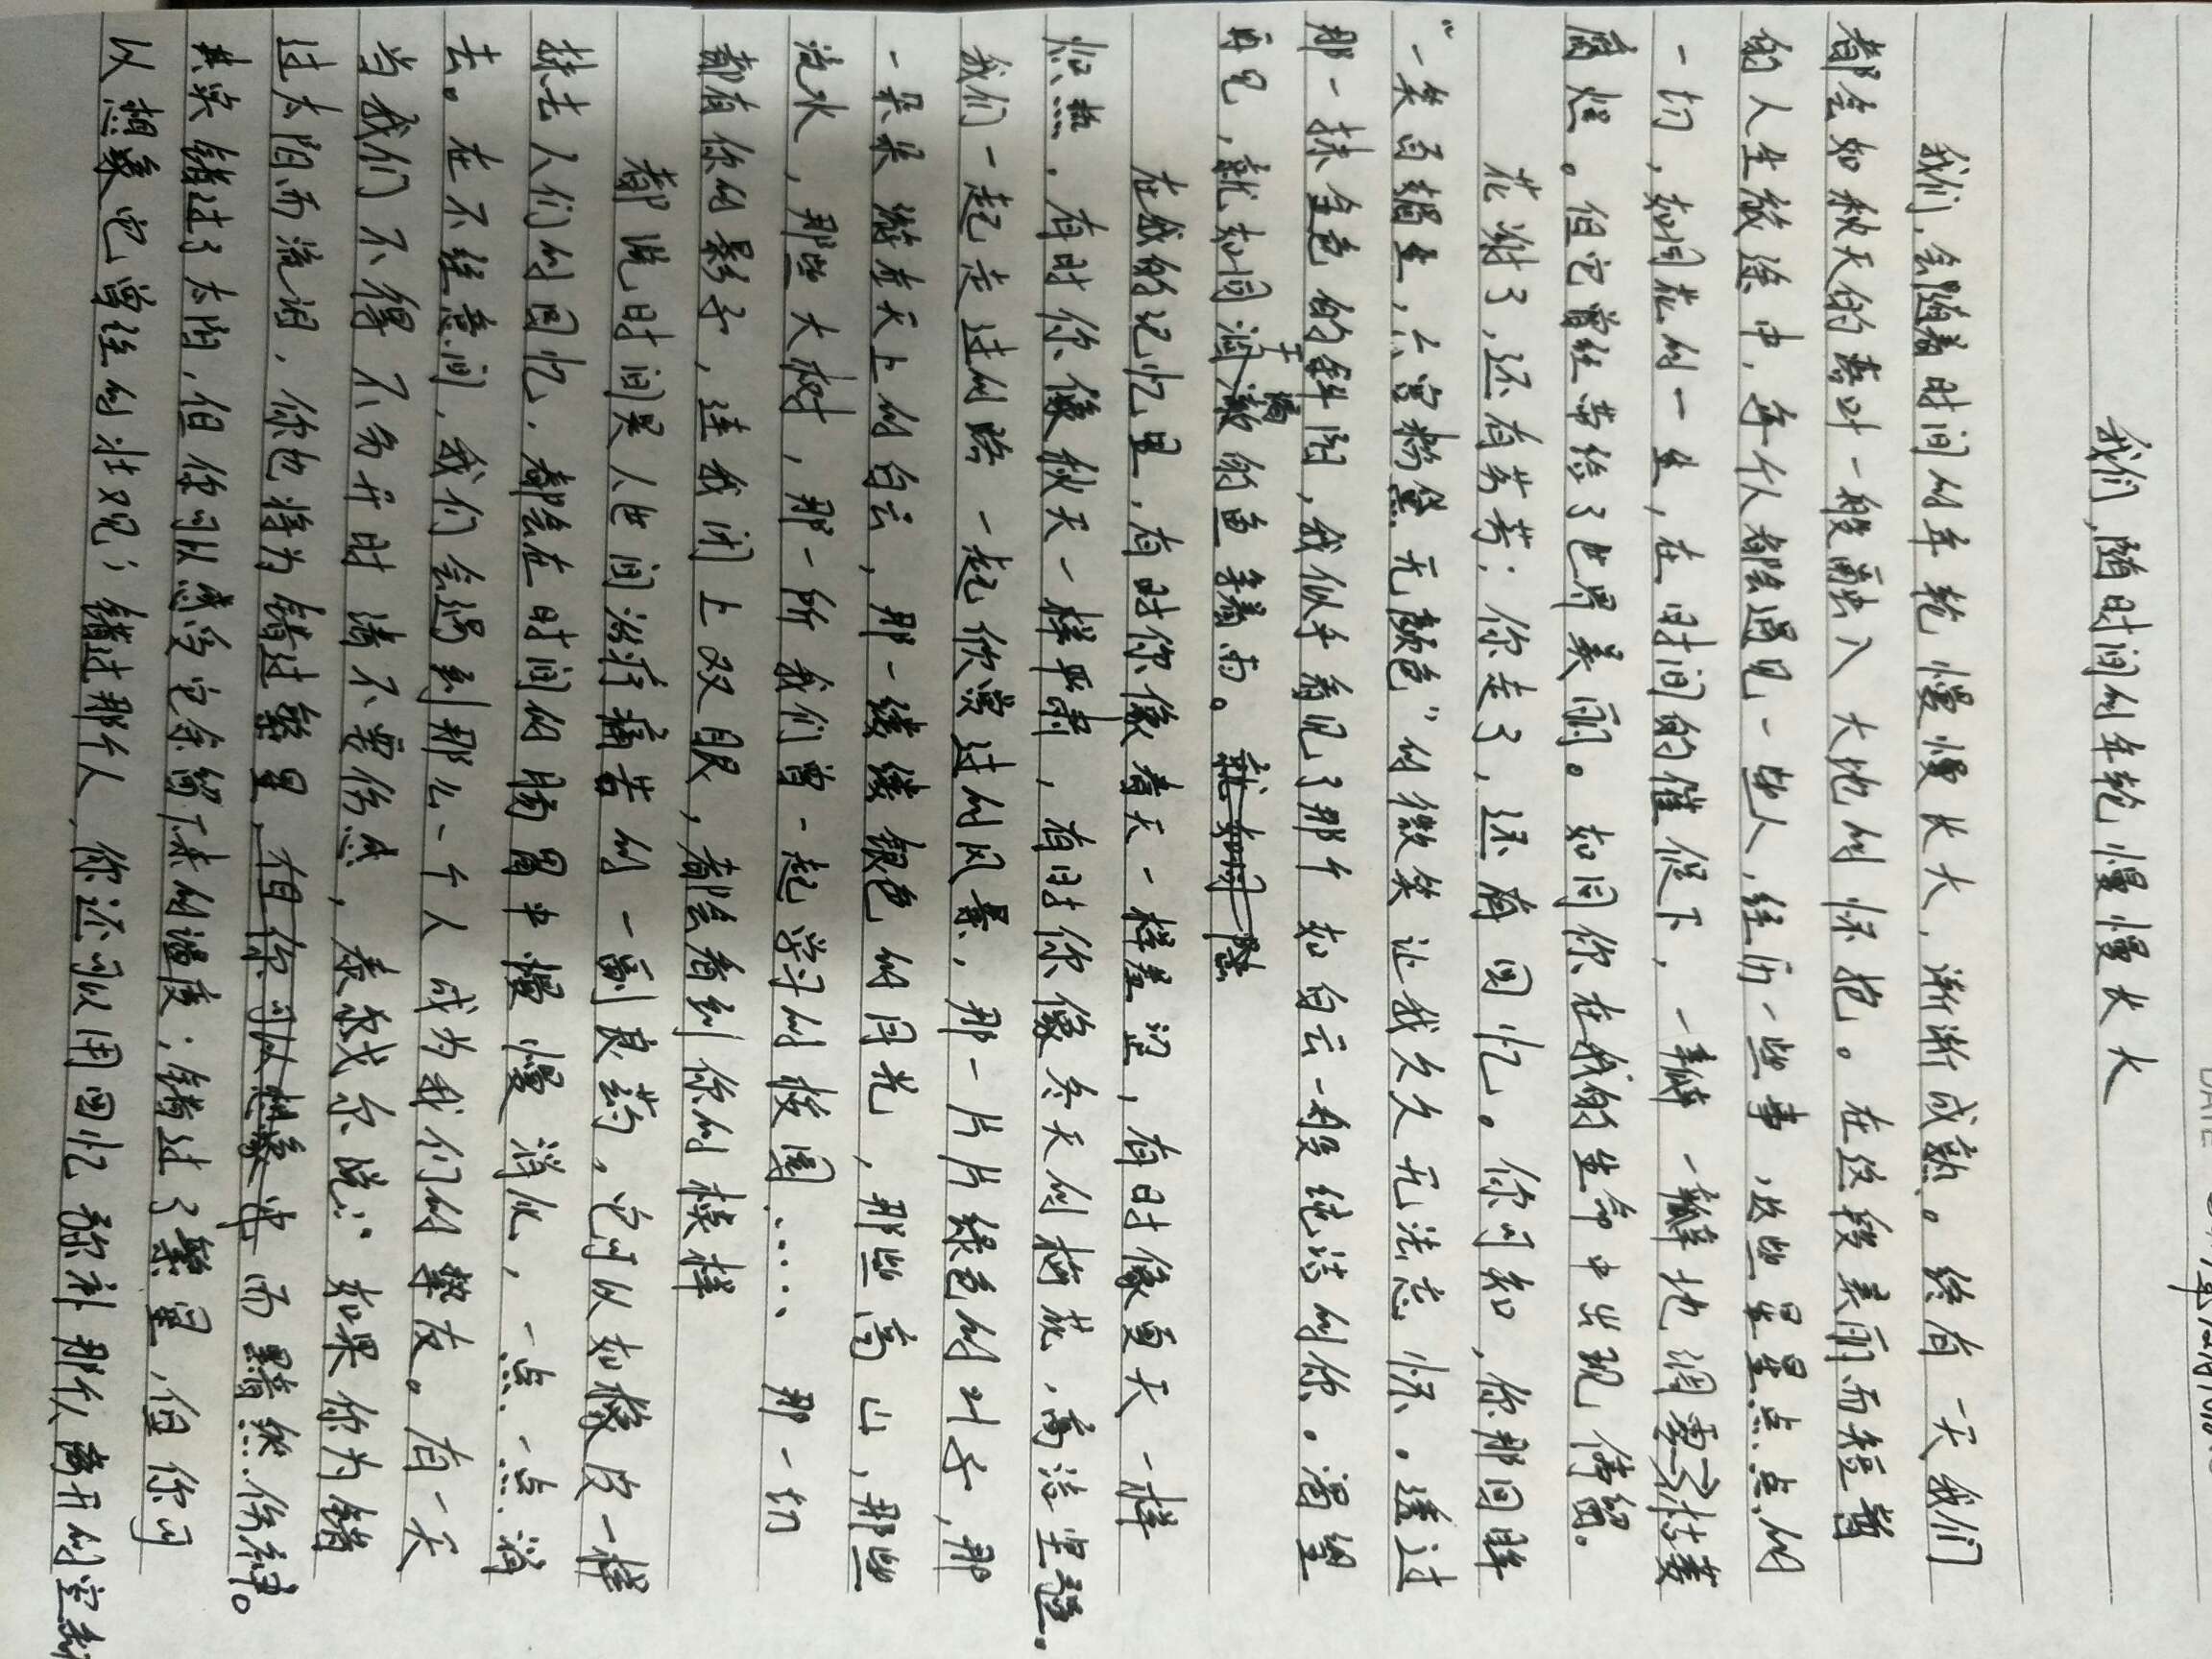 我们,随时间的年轮慢慢长大
我们,会随着时间的年轮慢慢长大,渐渐成熟。终有一天我们
都会如秋天的落叶一般融入大地的怀抱。在这段美丽而短暂
的人生旅途中,每个人都会遇见一些人,经历一些事,这些星星点点的
一切,如同花的一生,在时间的催促下,一瓣一瓣地凋零枯萎
腐烂。但它曾经带给了世界美丽。如同你在我的生命中出现停留。
花谢了,还有芬芳;你走了,还有回忆。你可知,你那回眸
“一笑百媚生,六宫粉黛无颜色”的微笑让我久久无法忘怀。透过
那一抹金色的斜阳,我似乎看见了那个如白云一般纯洁的你。渴望
再见,就如同干涸的鱼
在我的记忆里,有时你像春天一样,有时像夏天一样
炽热,有时你像秋天一样严肃,有时你像冬天的梅花,高洁坚强。
我们一起走过的路 一起欣赏过的风景,那一片片绿色的叶子,那
一朵朵游在天上的白云,那一缕缕银色的月光,那些高山,那些
流水,那些大树,那一所我们曾一起学习的校园…… 那一切
都有你的影子,连我闭上双眼,都会看到你的模样
都说时间是人世间治疗痛苦的一副良药,它可以如橡皮一样
抹去人们的回忆,都会在时间的肠胃中慢慢消化,一点一点消
去。在不经意间,我们会遇到那么一个人成为我们的挚友。有一天
当我们不得不分开时请不要伤感,泰戈尔说:“如果你为错
过太阳而流泪,你也将为错过繁星 而黯然伤神。
其实错过了太阳,但你可以感受它余留下来的温度;错过了繁星,但你可
以想象它曾经的壮观;错过那个人,你还可以用回忆弥补那个人离开的空缺